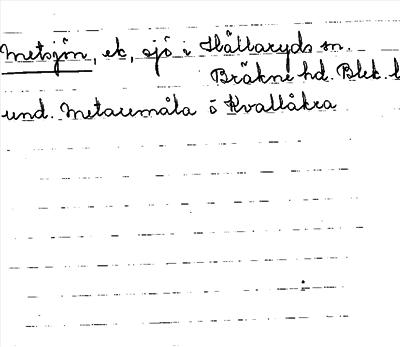 Metsjön, ek, sjö i Hällaryds sn.
Bräkne hd. Blek. l
und. Metaremåla o Kvallåkra